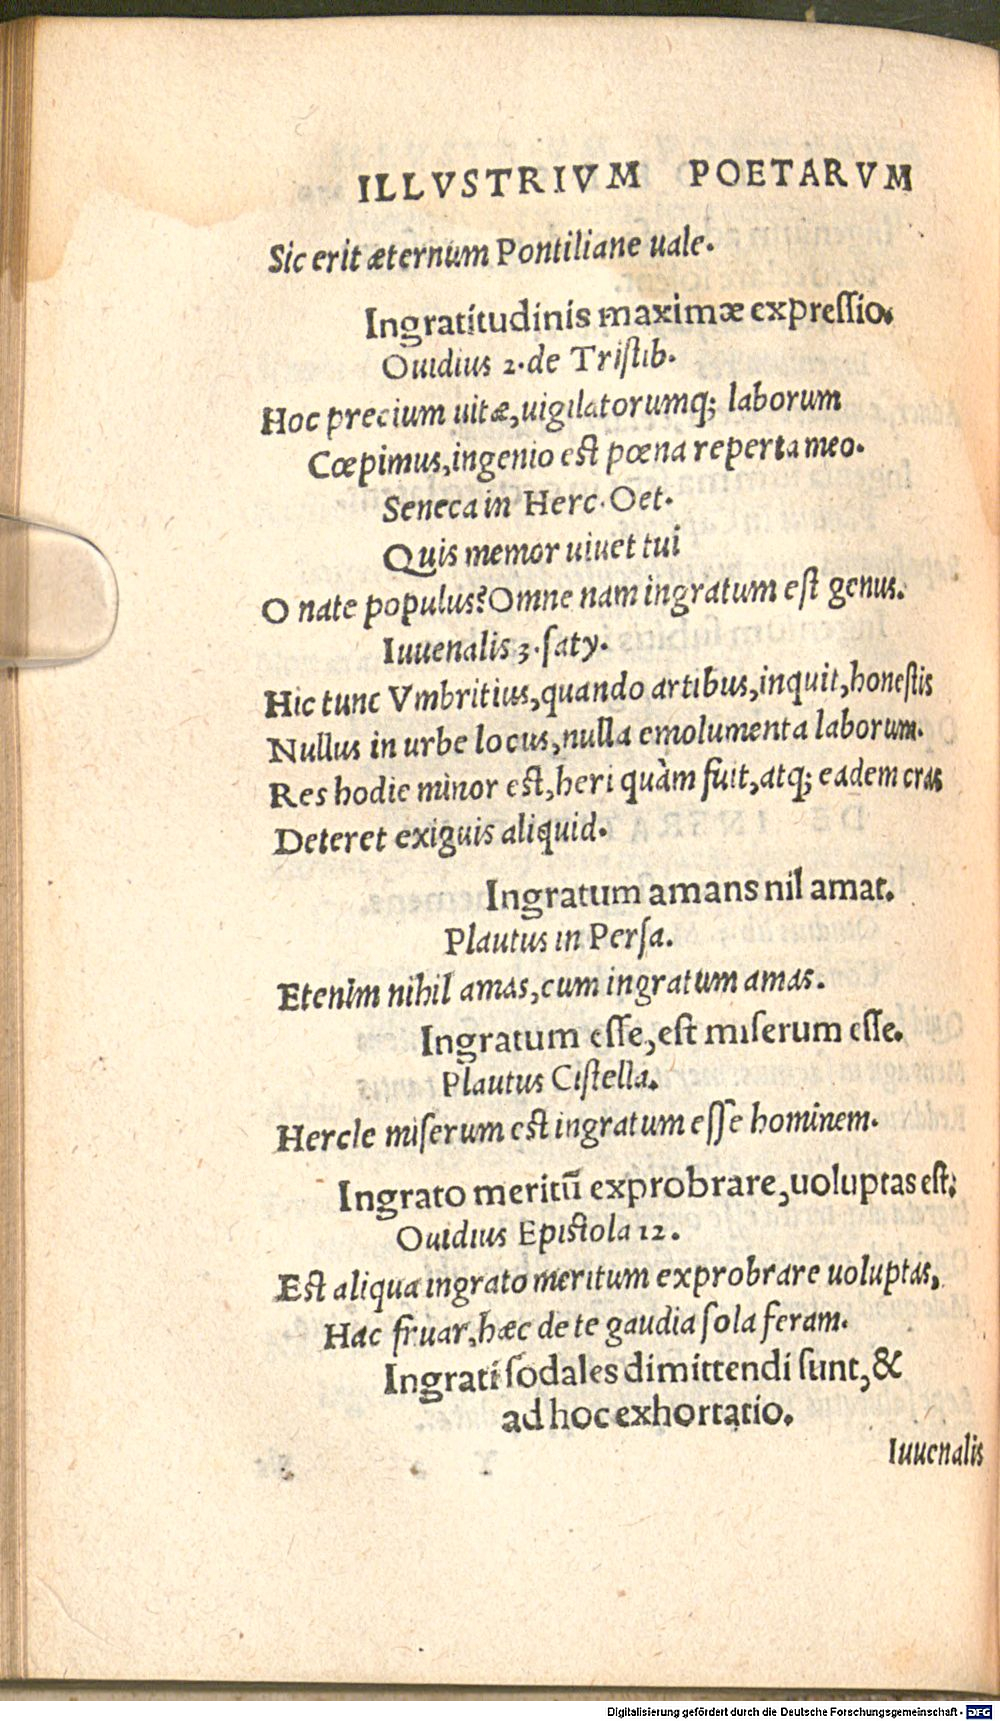 ILLVSTRIVM POETARVM
Sic erit æternum Pontiliane uale.
Ingratitudinis maximæ expressio.
Ouidius 2. de Tristib.
Hoc precium uitæ, uigilatorumq; laborum
Cœpimus, ingenio est pœna reperta meo.
Seneca in Herc. Oet.
Quis memor uiuet tui
O nate populus? Omne nam ingratum est genus.
Iuuenalis 3. saty.
Hic tunc Vmbritius, quando artibus, inquit, honestis
Nullus in urbe locus, nulla emolumenta laborum.
Res hodie minor est, heri quàm fuit, atq; eadem cras
Deteret exiguis aliquid.
Ingratum amans nil amat.
Plautus in Persa.
Etenim nihil amas, cum ingratum amas.
Ingratum esse, est miserum esse.
Plautus Cistella.
Hercle miserum est ingratum esse hominem.
Ingrato meritū exprobrare, uoluptas est.
Ouidius Epistola 12.
Est aliqua ingrato meritum exprobrare uoluptas,
Hac fruar, hæc de te gaudia sola feram.
Ingrati sodales dimittendi sunt, &
ad hoc exhortatio.
Iuuenalis
Digitalisierung gefördert durch die Deutsche Forschungsgemeinschaft - DFG